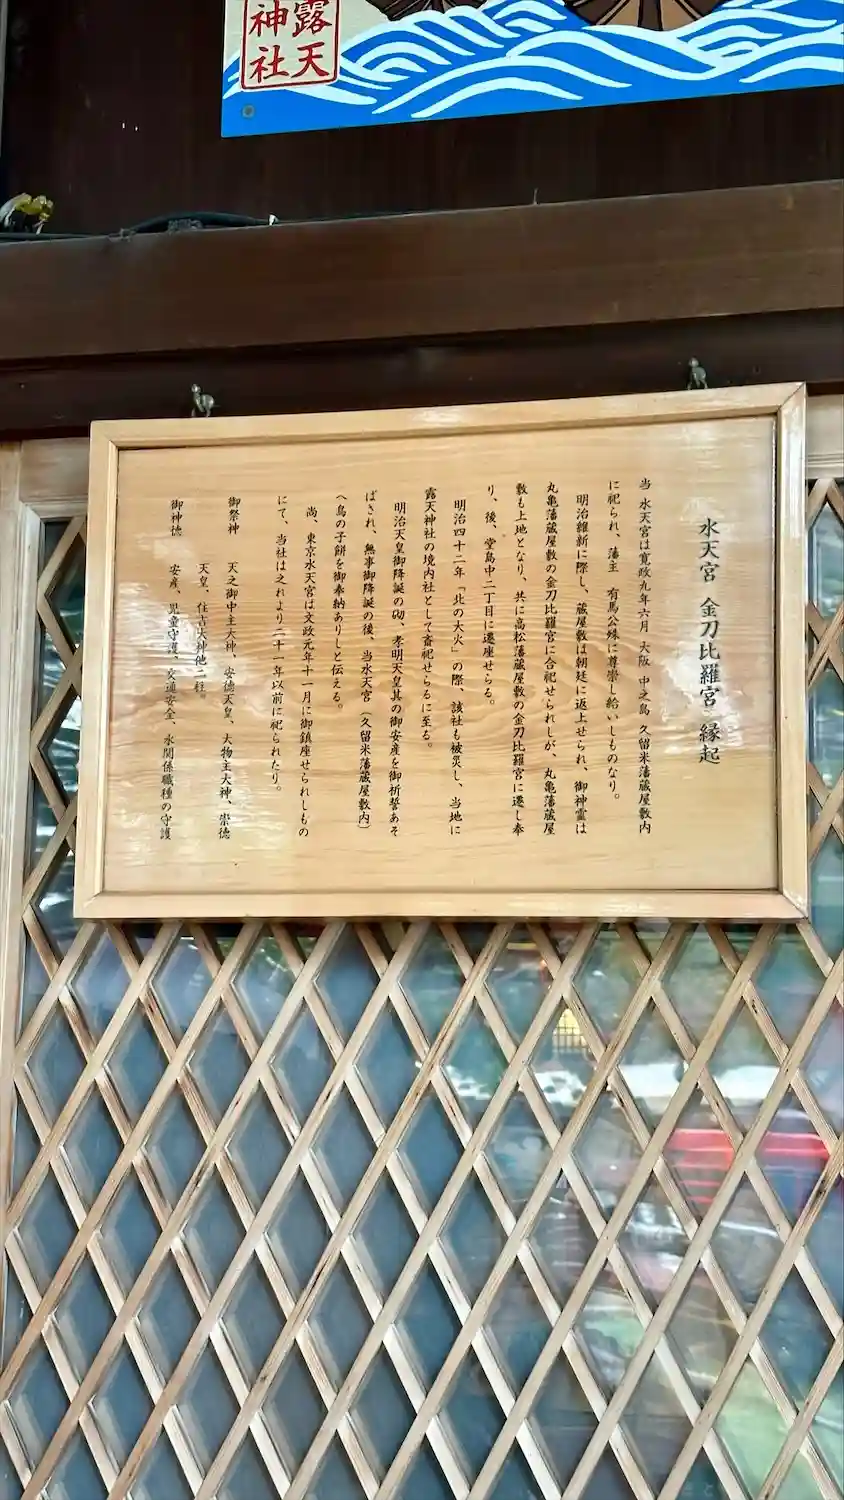 露天
神社
水天宮 金刀比羅宮 縁起
当 水天宮は寛政九年六月 大阪 中之島 久留米藩蔵屋敷内
に祀られ、藩主 有馬公殊に尊崇し給いしものなり。
明治維新に際し、蔵屋敷は朝廷に返上せられ、御神霊は
丸亀藩蔵屋敷の金刀比羅宮に合祀せられしが、丸亀藩蔵屋
敷も上地となり、共に高松藩蔵屋敷の金刀比羅宮に遷し奉
り、後、堂島中二丁目に遷座せらる。
明治四十二年「北の大火」の際、該社も被災し、当地に
露天神社の境内社として斎祀せらるに至る。
明治天皇御降誕の砌、孝明天皇其の御安産を御祈誓あそ
ばされ、無事御降誕の後、当水天宮(久留米藩蔵屋敷内)
へ鳥の子餅を御奉納ありしと伝える。
尚、東京水天宮は文政元年十一月に御鎮座せられしもの
にて、当社は之れより二十一年以前に祀られたり。
御祭神 天之御中主大神、安徳天皇、大物主大神、崇徳
天皇、住吉大神他二柱。
御神徳 安産、児童守護、交通安全、水関係職種の守護